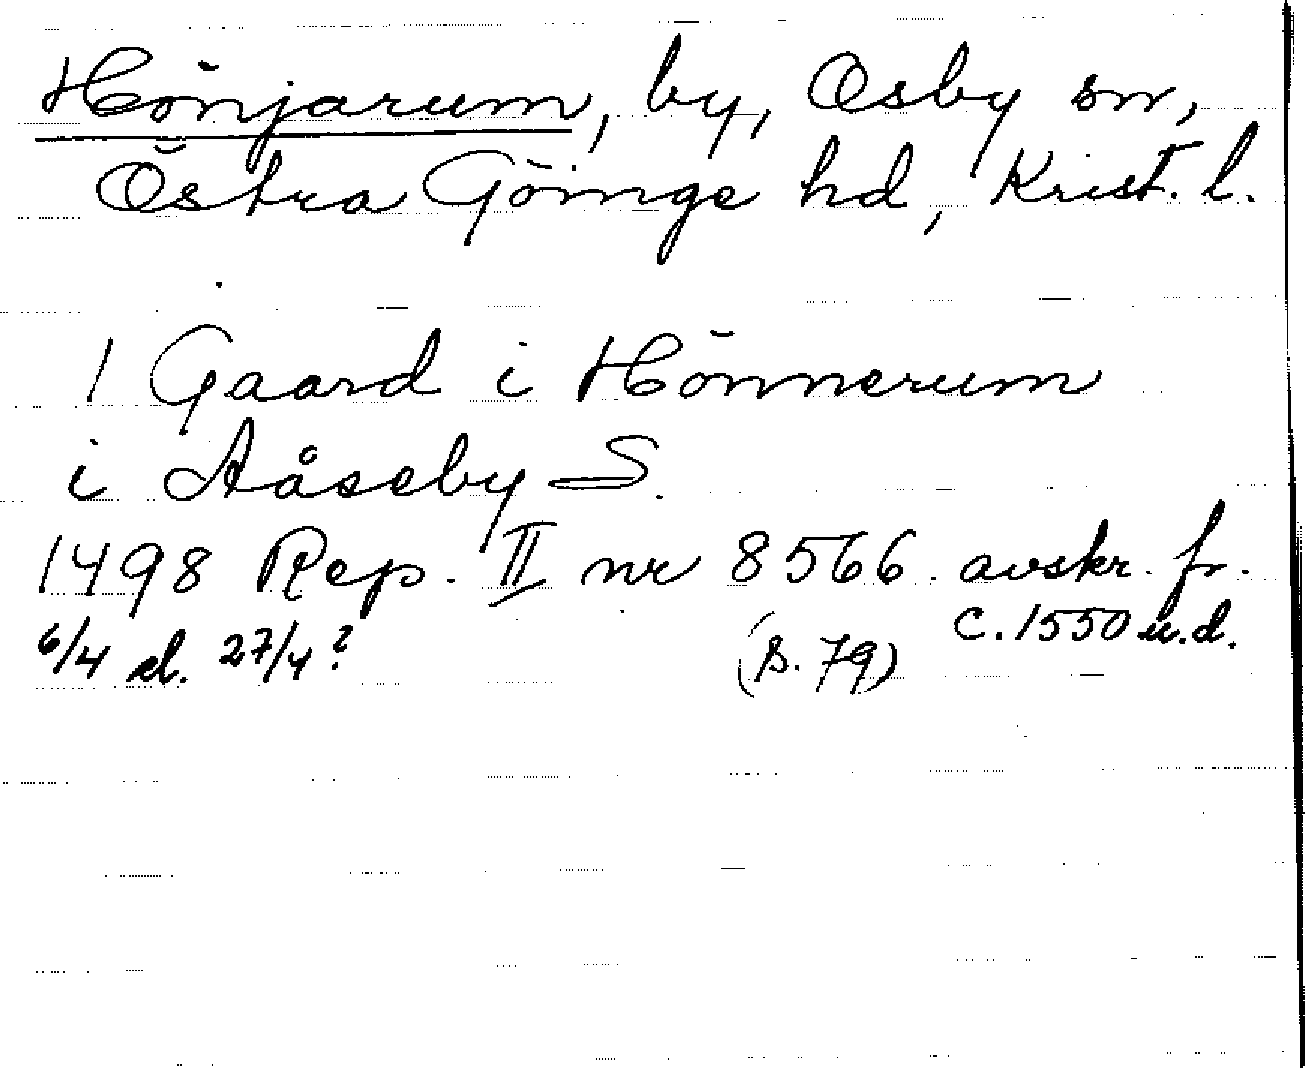 Hönjarum, by, Osby sn,
Östra Göinge hd, Krist. l.
1 Gaard i Hönnerum
i Aåseby S.
1498 Rep. II nr 8566. avskr. fr.
6/4 el. 27/4? (s. 79) c. 1550 u.d.